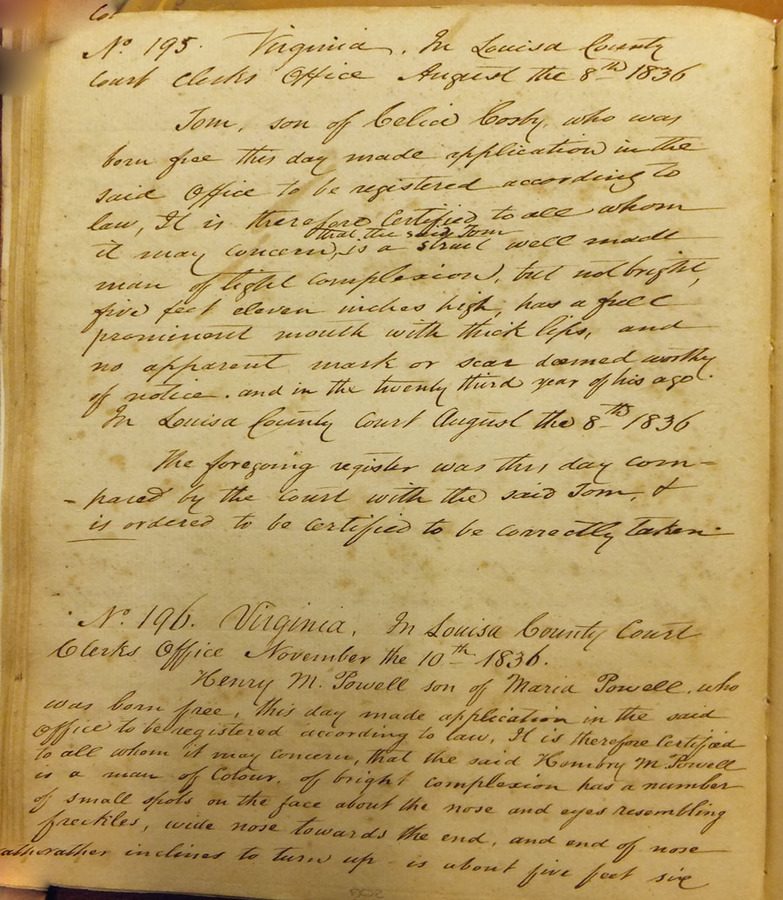 No 195. Virginia, In Louisa County
Court Clerks Office August the 8th 1836
Tom, son of Celia Cosby, who was
born free this day made application in the
said Office to be registered according to
law, It is therefore Certified to all whom
it may concern, that the said Tom is a strait well made
man of light complexion, but not bright,
five feet eleven inches high, has a full
prominent mouth with thick lips, and
no apparent mark or scar deemed worthy
of notice. and in the twenty third year of his age.
In Louisa County Court August the 8th 1836
The foregoing register was this day com-
-pared by the Court with the said Tom, &
is ordered to be certified to be correctly taken.
No 196. Virginia, In Louisa County Court
Clerks Office November the 10th 1836.
Henry M. Powell son of Maria Powell, who
was born free, this day made application in the said
Office to be registered according to law, It is therefore Certified
to all whom it may concern, that the said Henry M Powell
is a man of Colour, of bright complexion has a number
of small spots on the face about the nose and eyes resembling
freckles, wide nose towards the end, and end of nose
rather inclines to turn up - is about five feet six